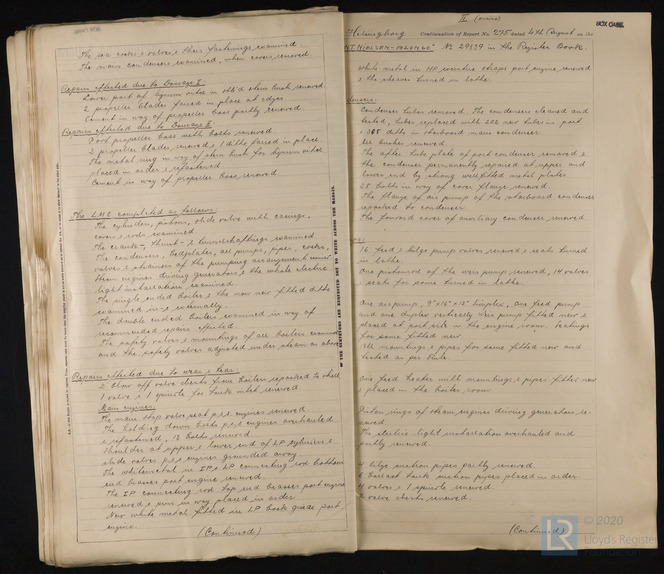 The sea cocks & valves & their fastenings examined.
The main condensers examined, when cover removed
Repairs effected due to Damage I
Lower part of lignum vitae in stb'd stern bush renewed
2 propeller blades faired in place at edges
Cement in way of propeller boss partly renewed.
Repairs effected due to Damage II
Port propeller boss with bolts renewed
2 propeller blades renewed & 1 ditto faired in place
The metal ring in way of stern bush for lignum vitae
placed in order & refastened
Cement in way of propeller boss renewed
The LMC completed as follows:
The cylinders, pistons, slide valves with casings,
covers & rods examined
The cranks-, thrust- & tunnelshaftings examined
The condensers, bedplates, air pumps, pipes, cocks,
valves & strainers of the pumping arrangement examd
Steam engines driving generators & the whole electric
light installation examined
The single ended boiler & the now new fitted ditto
examined in- & externally
The double ended boilers examined in way of
recommended repairs effected
The safety valves & mountings of all boilers examined
and the safety valves adjusted under steam as above
Repairs effected due to wear & tear:
2 blow off valve chests from boilers repaired
1 valve & 1 spindle for tanks inlet renewed
Main engines:
The main stop valve seat p & s engines renewed
The holding down bolts p & s engines overhauled
& refastened, 13 bolts renewed
Shoulder at upper & lower end of LP cylinders &
slide valves p & s engines grounded away
The whitemetal in IP & LP connecting rod bottom
end brasses port engine renewed
The IP connecting rod top end brasses port engine
renewed & pins in way placed in order
New white metal fitted in LP back guide port
engine.
(Continued)
II (contd)
Helsingborg
Confirmation of Report No. 275 dated 4th August on the
No 29139 in the Register Book.
BOX CASE
White metal in HP eccentric straps port engine renewed
& the sheaves turned in lathe
Condenser tubes removed. The condensers cleaned and
tested, tubes replaced with 202 new tubes in port
ditto in starboard main condenser
The after tube plate of port condenser removed &
the condenser permanently repaired at upper and
lower end by strong wellfitted metal plates
28 bolts in way of cover flange renewed.
The flange of air pump of the starboard condenser
repaired to condenser
The forward cover of auxiliary condenser renewed
16 feed & bilge pump valves renewed & seats turned
in lathe
One pistonrod of the weir pump renewed, 14 valves
& seats for same turned in lathe
One airpump, 9"x16"x12" Simplex, one feed pump
and one duplex vertically weir pump fitted new &
placed at port side in the engine room. Seatings
for same fitted new
All mountings & pipes for same fitted new and
tested as per Rule
One feed heater with mountings & pipes fitted new
& placed in the boiler room
Piston rings of steam engines driving generators re-
newed
The electric light installation overhauled and
partly renewed
4 bilge suction pipes partly renewed
6 ballast tank suction pipes placed in order
4 valves & 1 spindle renewed
2 valve chests renewed
(Continued)
LR
© 2020
Lloyd's Register
Foundation